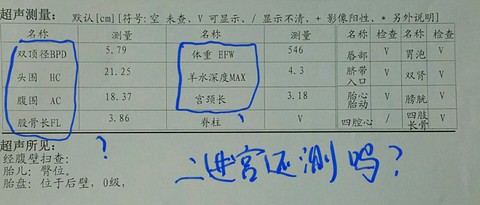 超声测量: 默认[cm] [符号: 空 未查, V 可显示, / 显示不清, + 影像阳性, * 另外说明]
名称 测量 名称 测量 名称 检查 名称 检查
双顶径BPD 5.79 体重 EFW 546 唇部 V 胃泡 V
头围 HC 21.25 羊水深度MAX 4.3 脐带入口 V 双肾 V
腹围 AC 18.37 宫颈长 3.18 胎心胎动 V 膀胱 V
股骨长FL 3.86 脊柱 V 四腔心 / 四肢长骨 V
超声所见:
经腹壁扫查:
胎儿: 臀位,
胎盘: 位于后壁, 0级,
?
二进宫还测吗?